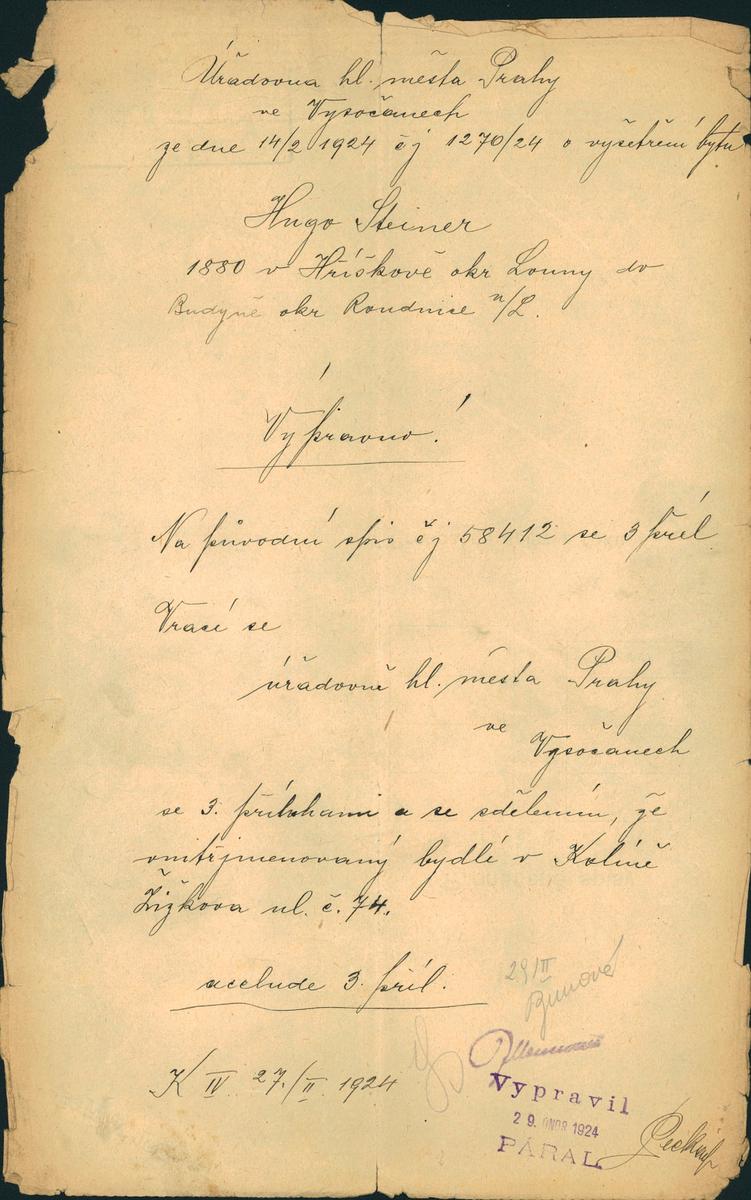 Úřadovna hl. města Prahy
ve Vysočanech
ze dne 14/2 1924 čj 1270/24 o vyšetření bytu
Hugo Steiner
1880 v Hříškově okr Louny do
Budyně okr Roudnice n/L.
Výpravno!
Na původní spis čj 58412 se 3 příl
Vrací se
úřadovně hl. města Prahy
ve
Vysočanech
se 3. přílohami a se sdělením, že
vnitřjmenovaný bydlí v Kolíně
Žižkova ul. č. 74.
acclude 3. příl.
29/II
K IV 27./II. 1924
Vypravil
29. ÚNOR 1924
PÁRAL